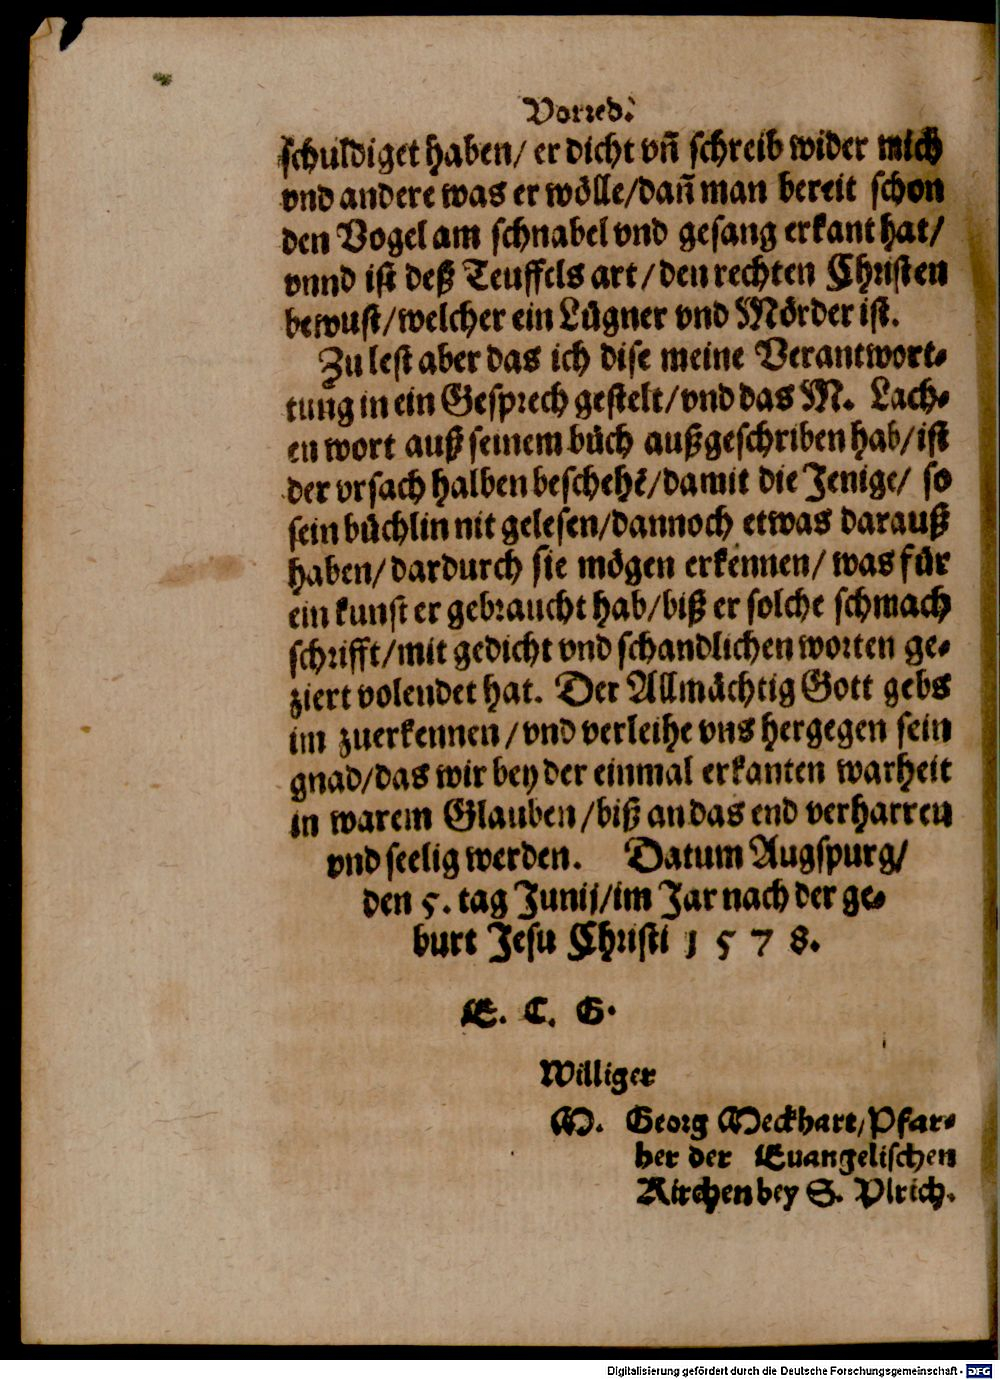 Vorred.
schuldiget haben/ er dicht vn̄ schreib wider mich
vnd andere was er wölle/dan̄ man bereit schon
den Vogel am schnabel vnd gesang erkant hat/
vnnd ist deß Teuffels art/den rechten Christen
bewust/welcher ein Lügner vnd Mörder ist.
Zu lest aber das ich dise meine Verantwort-
tung in ein Gesprech gestelt/vnd das M. Lach-
en wort auß seinem büch außgeschriben hab/ist
der vrsach halben beschehē/damit die Jenige/ so
sein büchlin nit gelesen/dannoch etwas darauß
haben/dardurch sie mögen erkennen/ was für
ein kunst er gebraucht hab/biß er solche schmach
schrifft/mit gedicht vnd schandlichen worten ge-
ziert volendet hat. Der Allmächtig Gott gebs
im zuerkennen/vnd verleihe vns hergegen sein
gnad/das wir bey der einmal erkanten warheit
in warem Glauben/biß an das end verharren
vnd seelig werden. Datum Augspurg/
den 5. tag Junij/im Jar nach der ge-
burt Jesu Christi 1 5 7 8.
E. C. G.
Williger
M. Georg Meckhart/Pfar-
her der Euangelischen
Kirchen bey S. Vlrich.
Digitalisierung gefördert durch die Deutsche Forschungsgemeinschaft - DFG